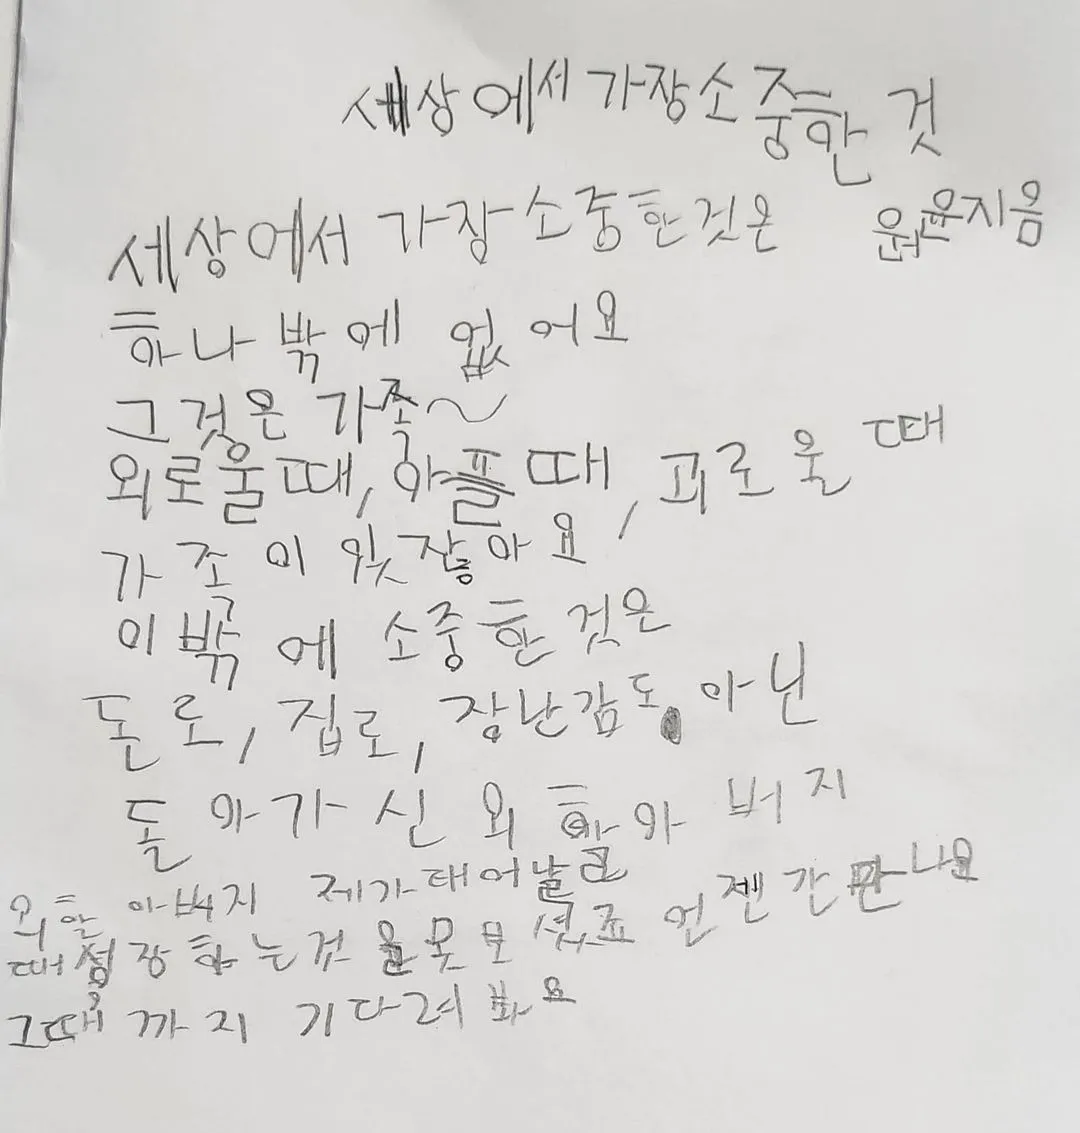 세상에서 가장 소중한 것
원윤지음
세상에서 가장 소중한 것은
하나 밖에 없어요
그것은 가족~
외로울때, 아플때, 괴로울때
가족이 있잖아요
이 밖에 소중한 것은
돈로, 집로, 장난감도 아닌
돌아가신 외할아버지
외할아버지 제가 태어날
때 성장하는것을 못 모셨죠 언젠간 만나요
그때까지 기다려 봐요